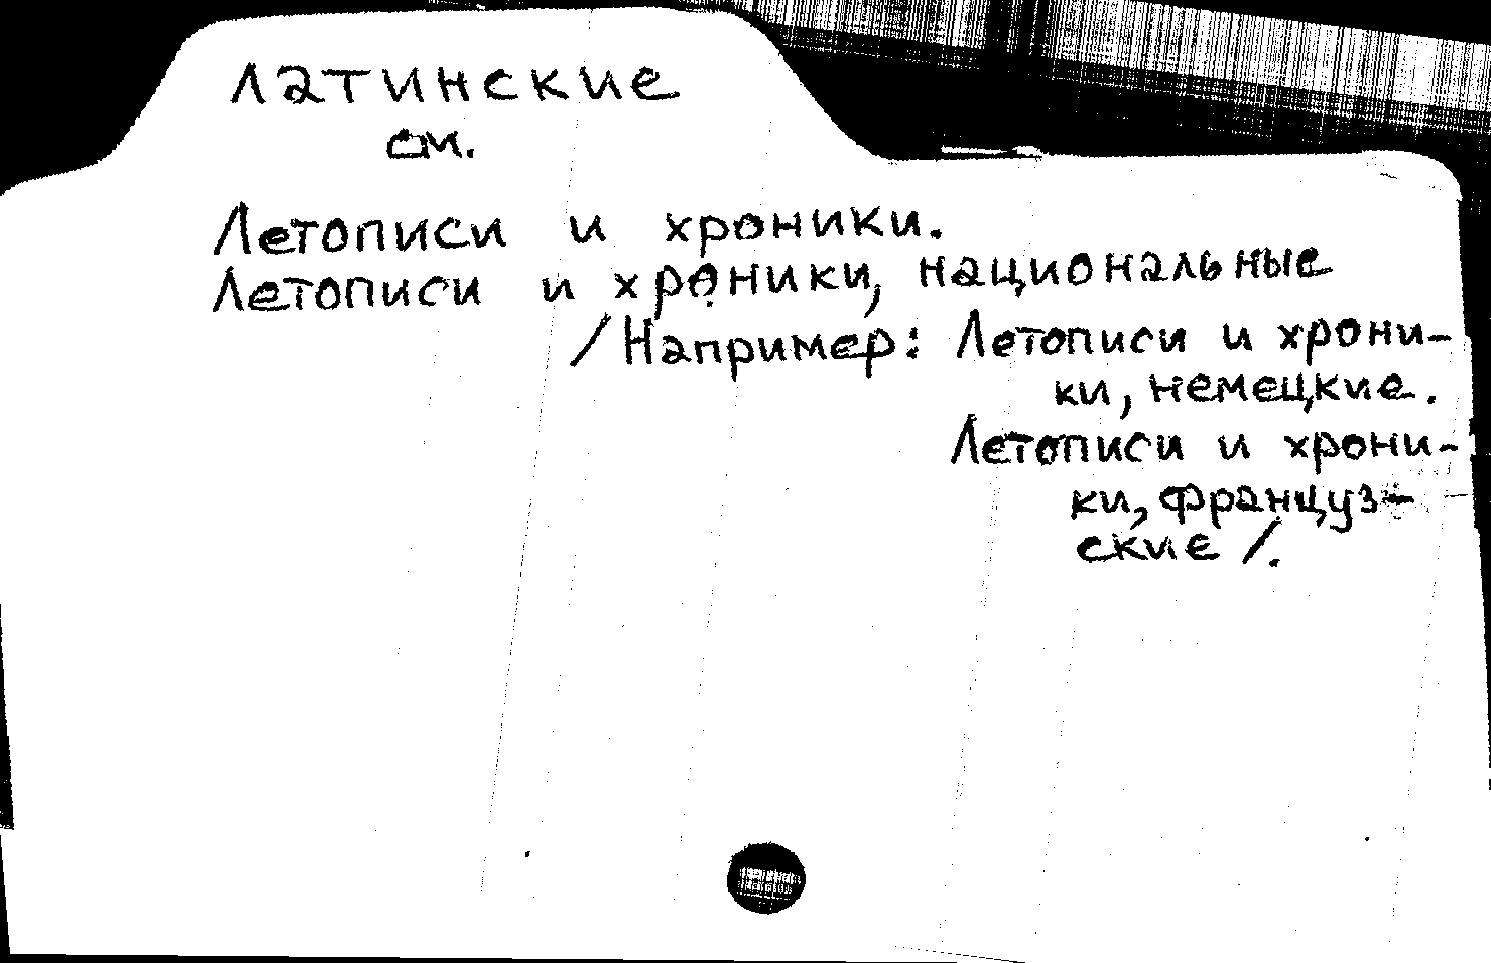 Латинские
см.
Летописи и хроники.
Летописи и хроники, национальные
/Например: Летописи и хрони-
ки, немецкие.
Летописи и хрони-
ки, француз-
ские/.